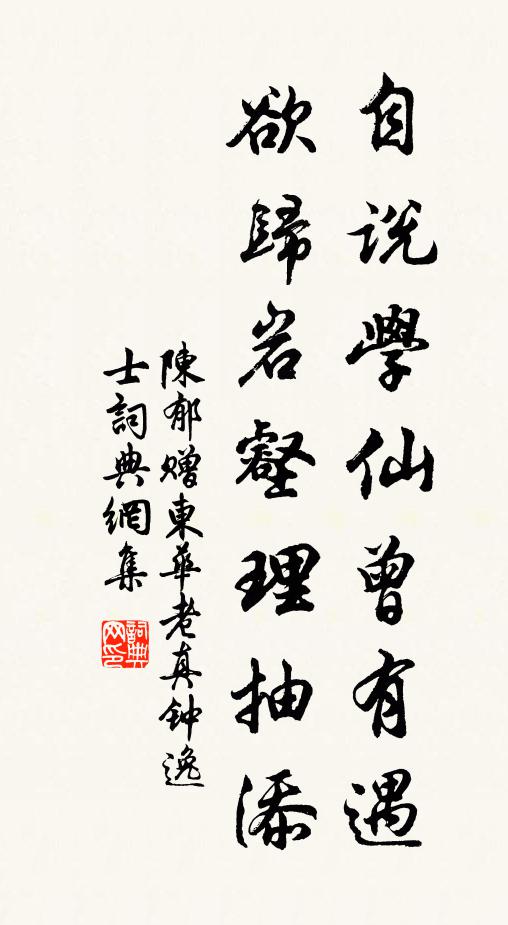 自説學仙曾有遇
欲歸岩壑理抽添
陳郁赠東華老真钟逸
士詞典網集
詞典
网印